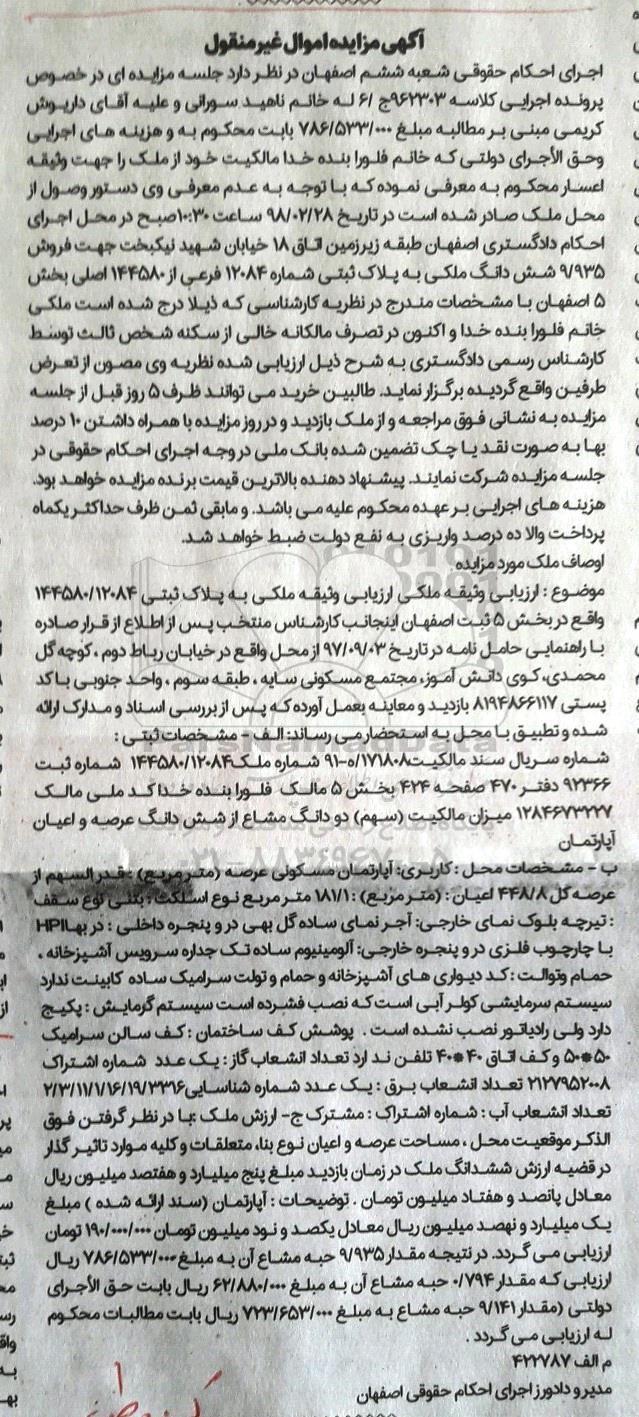 آگهی مزایده اموال غیر منقول
اجرای احکام حقوقی شعبه ششم اصفهان در نظر دارد جلسه مزایده ای در خصوص
پرونده اجرایی کلاسه ۹۶۲۳۰۳ج /۶ له خانم ناهید سورانی و علیه آقای داریوش
کریمی مبنی بر مطالبه مبلغ ۷۸۶/۵۳۳/۰۰۰ بابت محکوم به و هزینه های اجرایی
وحق الأجرای دولتی که خانم فلورا بنده خدا مالکیت خود از ملک را جهت وثیقه
اعسار محکوم به معرفی نموده که با توجه به عدم معرفی وی دستور وصول از
محل ملک صادر شده است در تاریخ ۹۸/۰۲/۲۸ ساعت ۱۰:۳۰صبح در محل اجرای
احکام دادگستری اصفهان طبقه زیرزمین اتاق ۱۸ خیابان شهید نیکبخت جهت فروش
۹/۹۳۵ شش دانگ ملکی به پلاک ثبتی شماره ۱۲۰۸۴ فرعی از ۱۴۴۵۸۰ اصلی بخش
۵ اصفهان با مشخصات مندرج در نظریه کارشناسی که ذیلا درج شده است ملکی
خانم فلورا بنده خدا و اکنون در تصرف مالکانه خالی از سکنه شخص ثالث توسط
کارشناس رسمی دادگستری به شرح ذیل ارزیابی شده نظریه وی مصون از تعرض
طرفین واقع گردیده برگزار نماید. طالبین خرید می توانند ظرف ۵ روز قبل از جلسه
مزایده به نشانی فوق مراجعه و از ملک بازدید و در روز مزایده با همراه داشتن ۱۰ درصد
بها به صورت نقد یا چک تضمین شده بانک ملی در وجه اجرای احکام حقوقی در
جلسه مزایده شرکت نمایند. پیشنهاد دهنده بالاترین قیمت برنده مزایده خواهد بود.
هزینه های اجرایی بر عهده محکوم علیه می باشد. و مابقی ثمن ظرف حداکثر یکماه
پرداخت والا ده درصد واریزی به نفع دولت ضبط خواهد شد.
اوصاف ملک مورد مزایده
موضوع : ارزیابی وثیقه ملکی ارزیابی وثیقه ملکی به پلاک ثبتی ۱۴۴۵۸۰/۱۲۰۸۴
واقع در بخش ۵ ثبت اصفهان اینجانب کارشناس منتخب پس از اطلاع از قرار صادره
با راهنمایی حامل نامه در تاریخ ۹۷/۰۹/۰۳ از محل واقع در خیابان رباط دوم ، کوچه گل
محمدی، کوی دانش آموز، مجتمع مسکونی سایه ، طبقه سوم ، واحد جنوبی با کد
پستی ۸۱۹۴۸۶۶۱۱۷ بازدید و معاینه بعمل آورده که پس از بررسی اسناد و مدارک ارائه
شده و تطبیق با محل به استحضار می رساند: الف - مشخصات ثبتی :
شماره سریال سند مالکیت۱۷۱۸۰۸/ه-۹۱ شماره ملک۱۴۴۵۸۰/۱۲۰۸۴ شماره ثبت
۹۲۳۶۶ دفتر ۴۷۰ صفحه ۴۲۴ بخش ۵ مالک فلورا بنده خدا کد ملی مالک
۱۲۸۴۶۷۳۲۲۷ میزان مالکیت (سهم) دو دانگ مشاع از شش دانگ عرصه و اعیان
آپارتمان
ب - مشخصات محل : کاربری: آپارتمان مسکونی عرصه (متر مربع) : قدرالسهم از
عرصه کل ۴۴۸/۸ اعیان : (متر مربع) : ۱۸۱/۱ متر مربع نوع اسلکت : بتنی نوع سقف
: تیرچه بلوک نمای خارجی: آجر نمای ساده گل بهی در و پنجره داخلی : در بهاHPL
با چارچوب فلزی در و پنجره خارجی: آلومینیوم ساده تک جداره سرویس آشپزخانه ،
حمام وتوالت : کد دیواری های آشپزخانه و حمام و تولت سرامیک ساده کابینت ندارد
سیستم سرمایشی کولر آبی است که نصب فشرده است سیستم گرمایش : پکیج
دارد ولی رادیاتور نصب نشده است . پوشش کف ساختمان : کف سالن سرامیک
۵۰*۵۰ و کف اتاق ۴۰*۴۰ تلفن ند ارد تعداد انشعاب گاز : یک عدد شماره اشتراک
۲۱۲۷۹۵۲۰۰۸ تعداد انشعاب برق : یک عدد شماره شناسایی۲/۳/۱۱/۱/۱۶/۱۹/۳۳۱۶
تعداد انشعاب آب : شماره اشتراک : مشترک ج- ارزش ملک : با در نظر گرفتن فوق
الذکر موقعیت محل ، مساحت عرصه و اعیان نوع بنا، متعلقات و کلیه موارد تاثیر گذار
در قضیه ارزش ششدانگ ملک در زمان بازدید مبلغ پنج میلیارد و هفتصد میلیون ریال
معادل پانصد و هفتاد میلیون تومان . توضیحات : آپارتمان (سند ارائه شده ) مبلغ
یک میلیارد و نهصد میلیون ریال معادل یکصد و نود میلیون تومان ۱۹۰/۰۰۰/۰۰۰ تومان
ارزیابی می گردد. در نتیجه مقدار ۹/۹۳۵ حبه مشاع آن به مبلغ ۷۸۶/۵۳۳/۰۰۰ ریال
ارزیابی که مقدار ۰/۷۹۴ حبه مشاع آن به مبلغ ۶۲/۸۸۰/۰۰۰ ریال بابت حق الأجرای
دولتی (مقدار ۹/۱۴۱ حبه مشاع به مبلغ ۷۲۳/۶۵۳/۰۰۰ ریال بابت مطالبات محکوم
له ارزیابی می گردد .
م الف ۴۲۲۷۸۷
مدیر و دادورز اجرای احکام حقوقی اصفهان